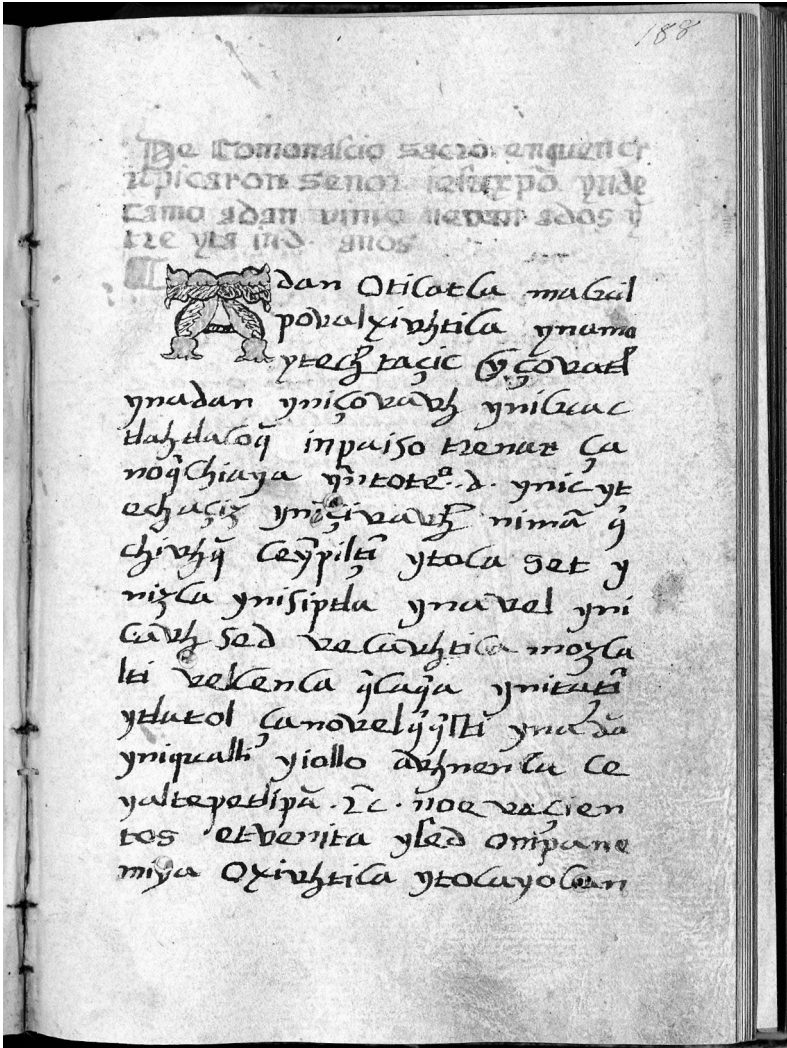 188
De Comonascio sacro. enquen cr
ıtpicaron senor iesuxpō ynde
tamo adan vinio ados ỹ
tre yta ind. anos
Adan Otilatla macuil
povalxivhtica ynamo
ytech taçic yçovatl
ynadan yniçovavh ynicuac
tlahtlacoq̄ inpaiso trenar ça
noq̄chiaya yn̄tote.ᵒ.d. ynicyt
echaçiz yniçivavh nimā q̄
chivhq̄ ceỹpiltī ytoca set y
nizca ynisiptla ynavel yni
cavh sed vecavhtica mozca
lti vellenca q̄caq̄a ynitatī
ytlatol çanovelq̄q̄stī ynadā
yniqualli yiollo avhnenca ce
yaltepetlipā . r̄c . noe vaçien
tos etvenita ysed ompane
miya Oxivhtica ytocayocan